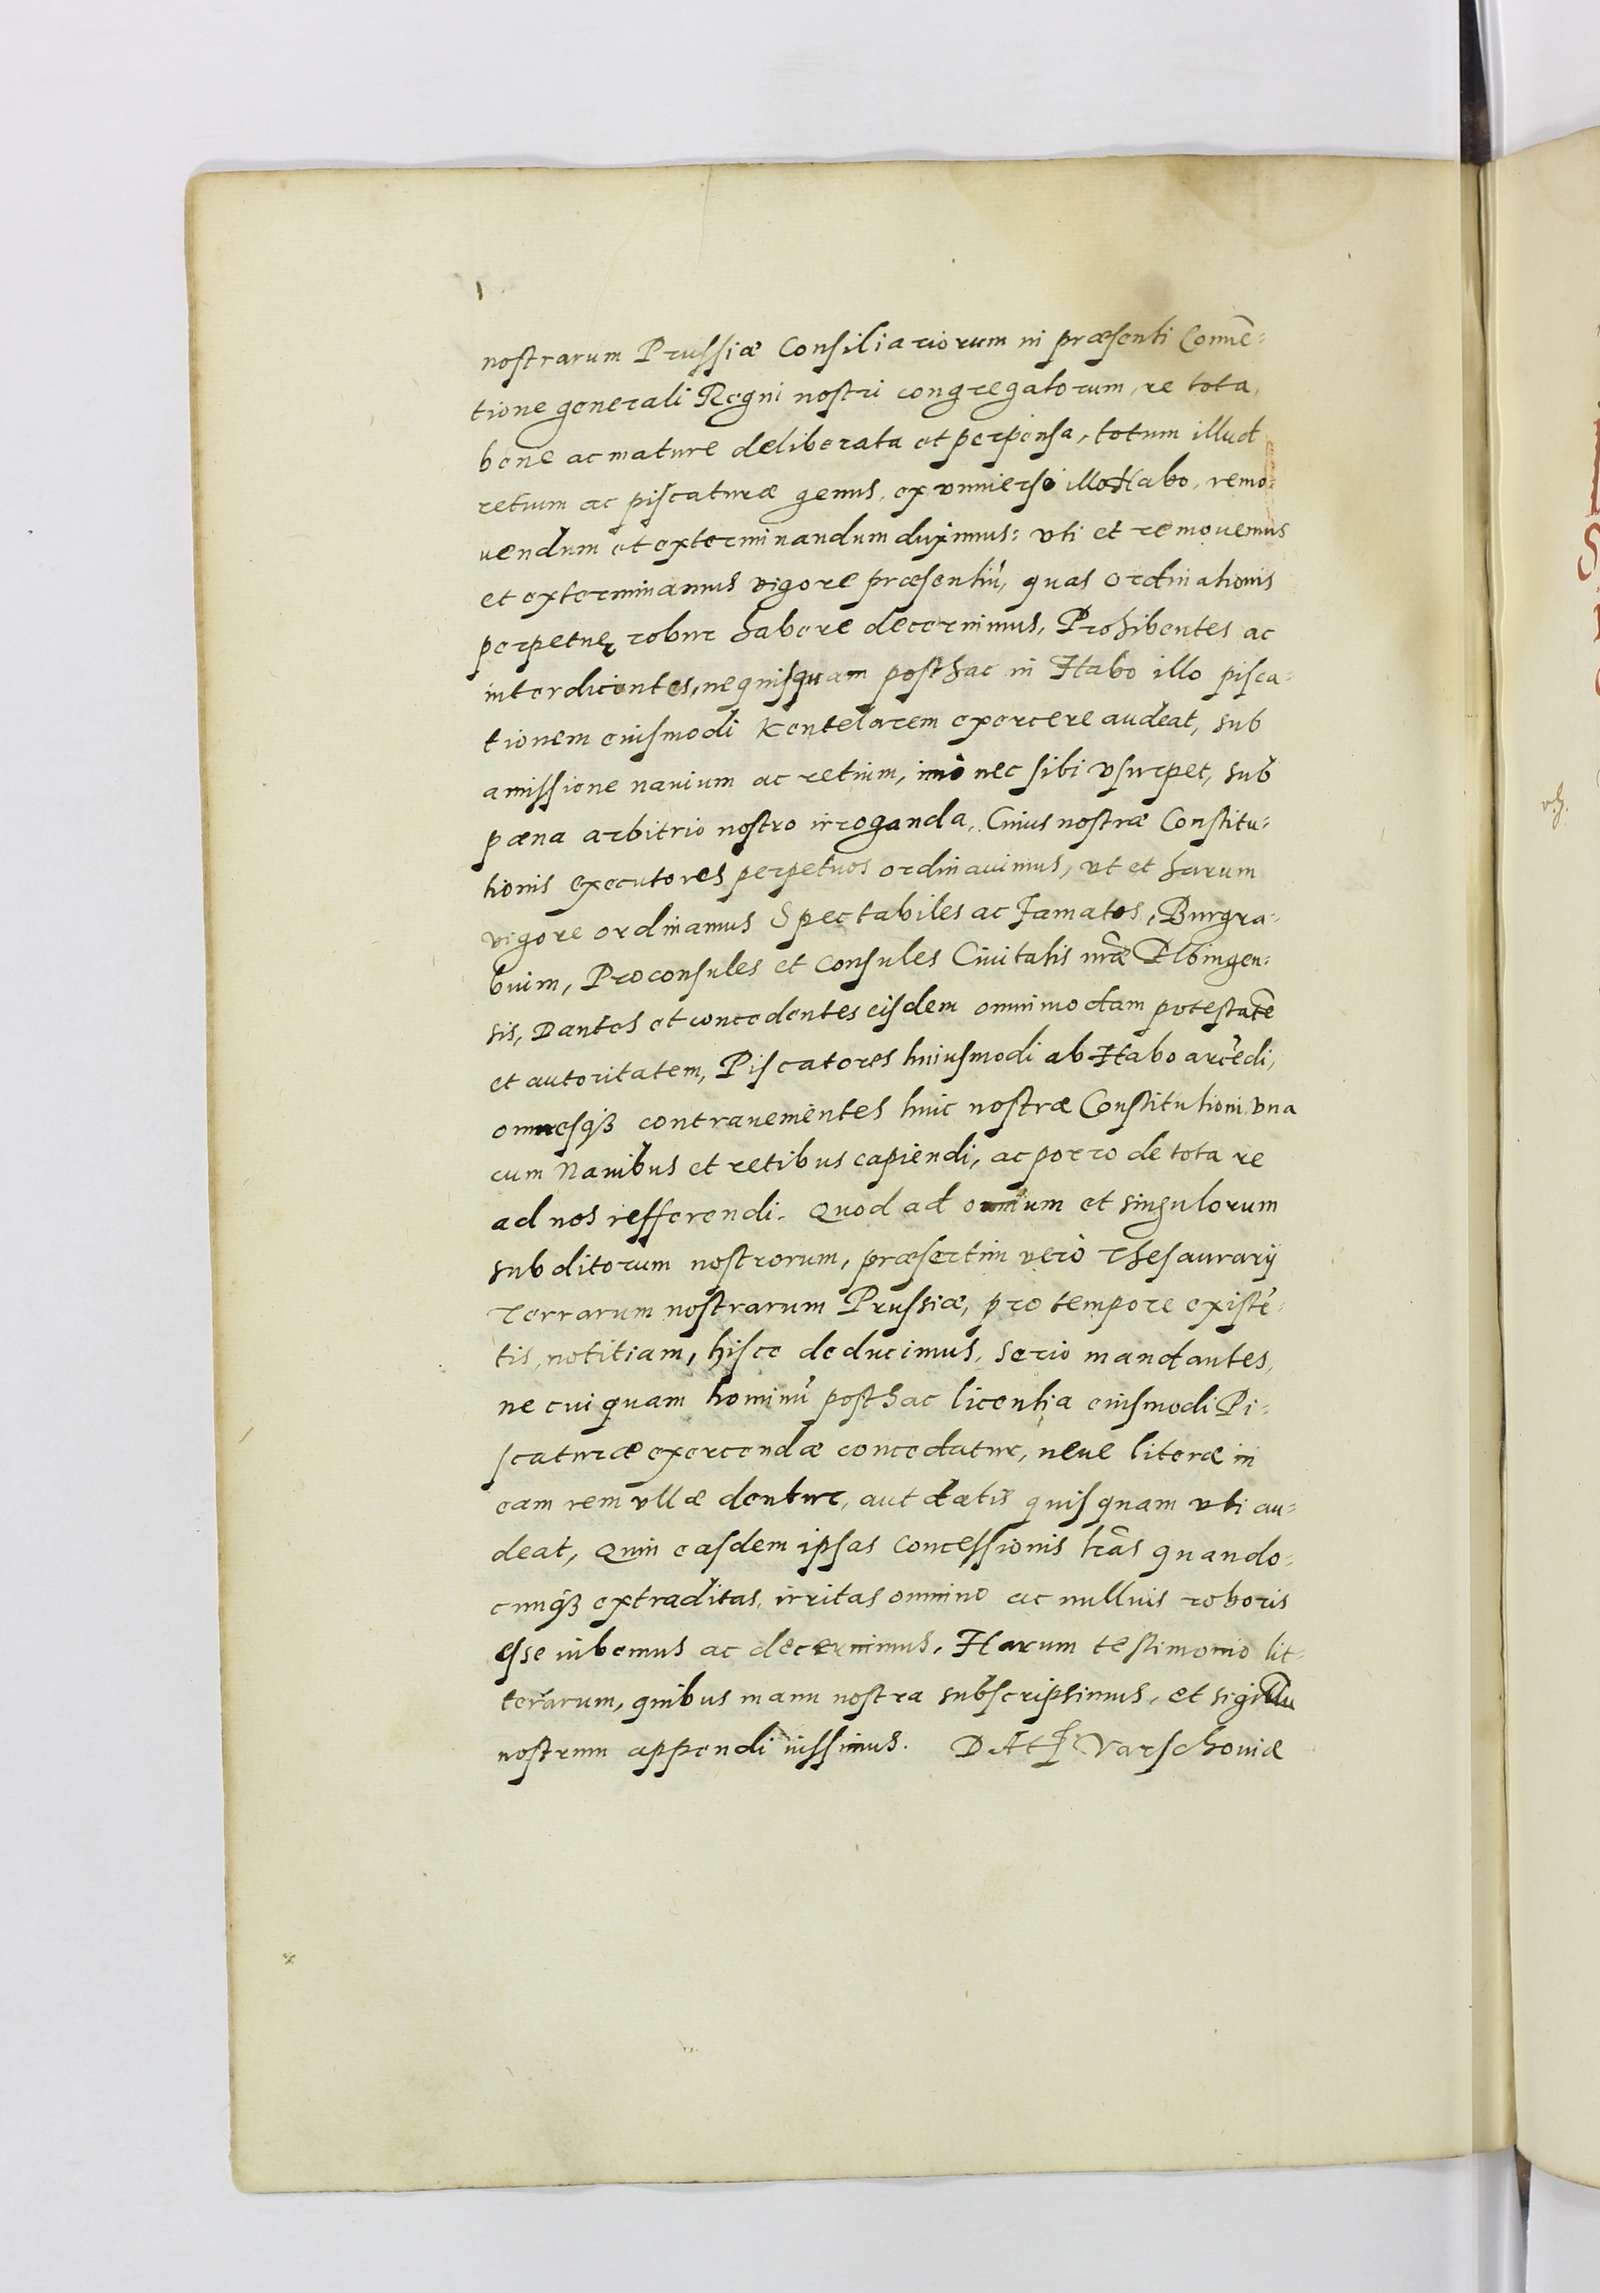 nostrarum Prussiæ Consiliariorum in præsenti Conuē:
tione generali Regni nostri congregatorum, re tota,
bene ac mature deliberata et perpensa, totum illud
retium ac piscaturæ genus, ex vniuerso illo Habo, remo:
uendum et exterminandum duximus: vti et remouemus
et exterminamus vigore præsentiũ, quas ordinationis
perpetuę robur habere decernimus, Prohibentes ac
interdicentes, ne quisquam posthac in Habo illo pisca:
tionem eiusmodi Kentelarem exercere audeat, sub
amissione nauium ac retium, imò nec sibi vsurpet, sub
pæna arbitrio nostro irroganda. Cuius nostræ Constitu:
tionis executores perpetuos ordinauimus, vt et harum
vigore ordinamus Spectabiles ac Famatos, Burgra:
bium, Proconsules et Consules Ciuitatis nr̃æ Elbingen:
sis, Dantes et concedentes eisdem omnimodam potestatē
et autoritatem, Piscatores huiusmodi ab Habo arcēdi,
omnesqꝫ contrauenientes huic nostræ Constitutioni vna
cum Nauibus et retibus capiendi, ac porro de tota re
ad nos refferendi. Quod ad omnium et singulorum
subditorum nostrorum, præsertim verò Thesaurarij
Terrarum nostrarum Prussiæ, pro tempore existē:
tis, notitiam, hisce deducimus, serio mandantes,
ne cuiquam hominũ posthac licentia eiusmodi Pi:
scaturæ exercendæ concedatur, neue literæ in
eam rem vllæ dentur, aut datis quisquam vti au:
deat, Quin easdem ipsas Concessionis lr̃as quando:
cunqꝫ extraditas, irritas omnino ac nullius roboris
esse iubemus ac decernimus. Harum testimonio lit:
terarum, quibus manu nostra subscripsimus, et sigillũ
nostrum appendi iussimus. DAt Varschouiæ